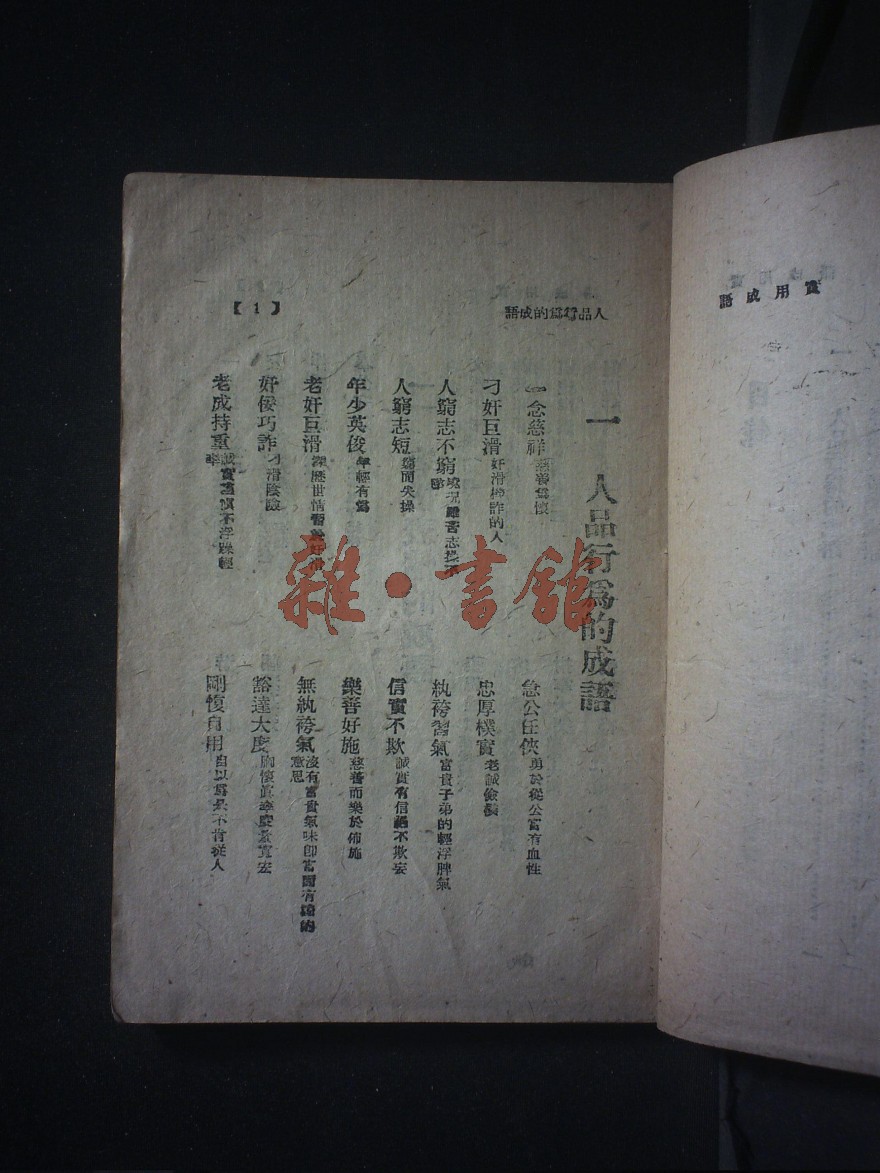 實用成語
人品行爲的成語
【1】
一 人品行爲的成語
一念慈祥 慈善爲懷
刁奸巨滑 奸滑機詐的人
人窮志不窮 境況雖苦志操不
人窮志短 窮而失操
年少英俊 年輕有爲
老奸巨滑 深歷世情習於奸滑
奸佞巧詐 刁滑陰險
老成持重 誠實謹慎不浮躁輕
率
急公任俠 勇於從公富有血性
忠厚樸實 老誠儉樸
紈袴習氣 富貴子弟的輕浮脾氣
信實不欺 誠實有信不欺妄
樂善好施 慈善而樂於佈施
無紈袴氣 沒有富貴氣味即富有的
意思
豁達大度 胸懷度量寬宏
剛愎自用 自以爲是不肯從人
雜·書館